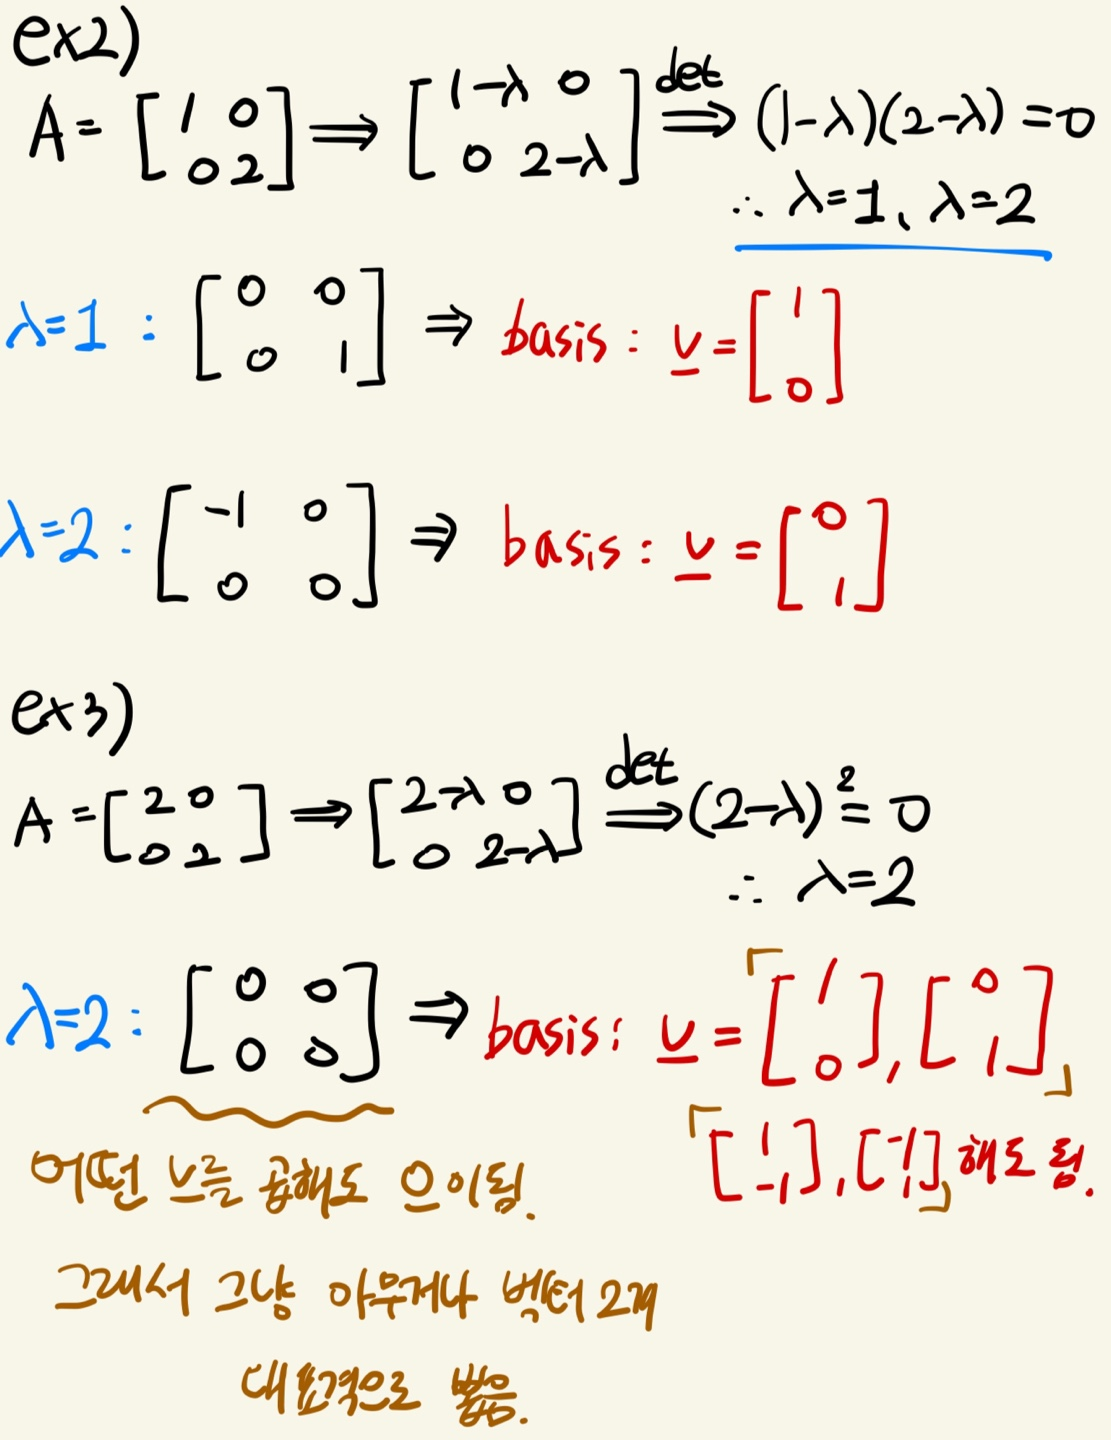 ex2)
A = [1 0; 0 2] ⟹ [1-λ 0; 0 2-λ] det⟹ (1-λ)(2-λ) = 0
∴ λ=1, λ=2
λ=1 : [0 0; 0 1] ⇒ basis : v = [1; 0]
λ=2 : [-1 0; 0 0] ⇒ basis : v = [0; 1]
ex3)
A = [2 0; 0 2] ⟹ [2-λ 0; 0 2-λ] det⟹ (2-λ)² = 0
∴ λ=2
λ=2 : [0 0; 0 0] ⇒ basis : v = 「[1; 0], [0; 1]」
「[1; -1], [-1; 1]」 해도 됨.
어떤 v를 곱해도 0이 됨.
그래서 그냥 아무거나 벡터 2개
대표격으로 뽑음.